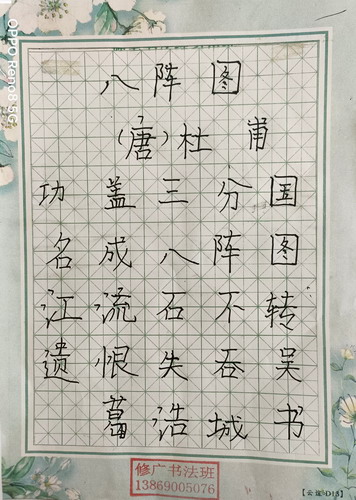 八阵图
（唐）杜甫
功盖三分国
名成八阵图
江流石不转
遗恨失吞吴
葛浩城书
修广书法班
13869005076
OPPO Reno8 5G